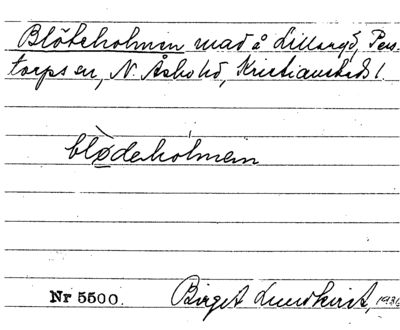 Blötekolmen mad å Lillaryd, Pers-
torps sn, N. Åsbo hd, Kristianstads l.
blø̀dekólmein
Nr 5500.
Birgit Lundkvist, 1936